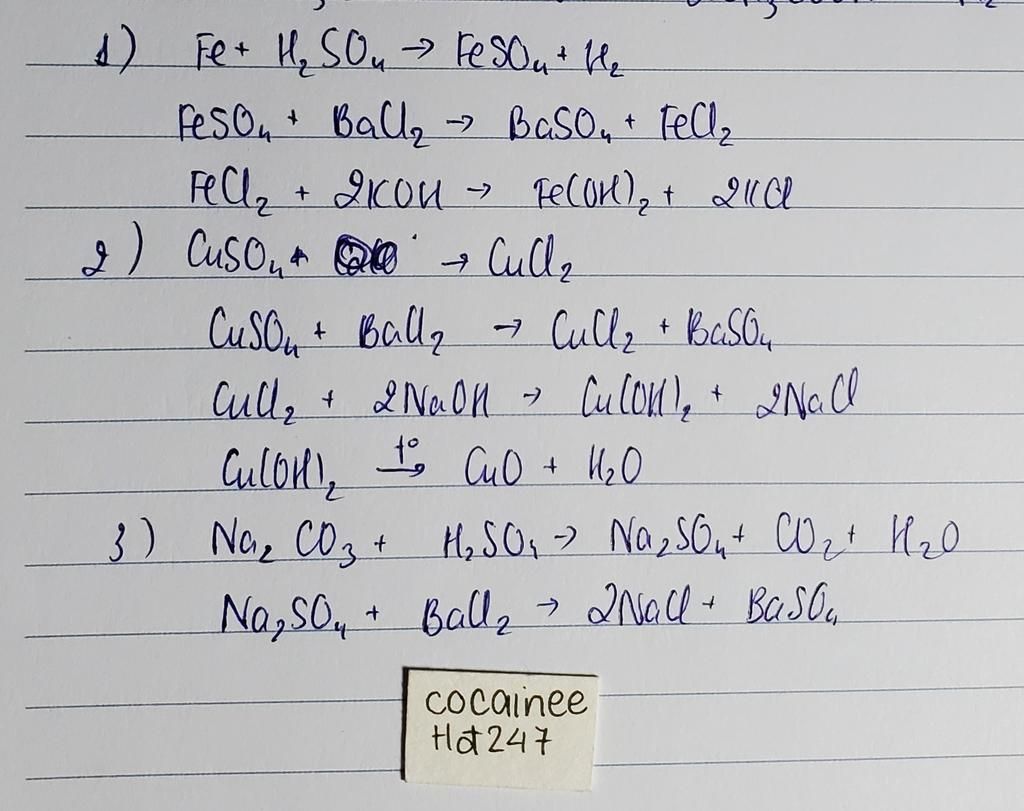 1) Fe + H₂SO₄ → FeSO₄ + H₂
FeSO₄ + BaCl₂ → BaSO₄ + FeCl₂
FeCl₂ + 2KOH → Fe(OH)₂ + 2KCl
2) CuSO₄ + → CuCl₂
CuSO₄ + BaCl₂ → CuCl₂ + BaSO₄
CuCl₂ + 2NaOH → Cu(OH)₂ + 2NaCl
Cu(OH)₂ t° → CuO + H₂O
3) Na₂CO₃ + H₂SO₄ → Na₂SO₄ + CO₂ + H₂O
Na₂SO₄ + BaCl₂ → 2NaCl + BaSO₄
cocainee
Hot247